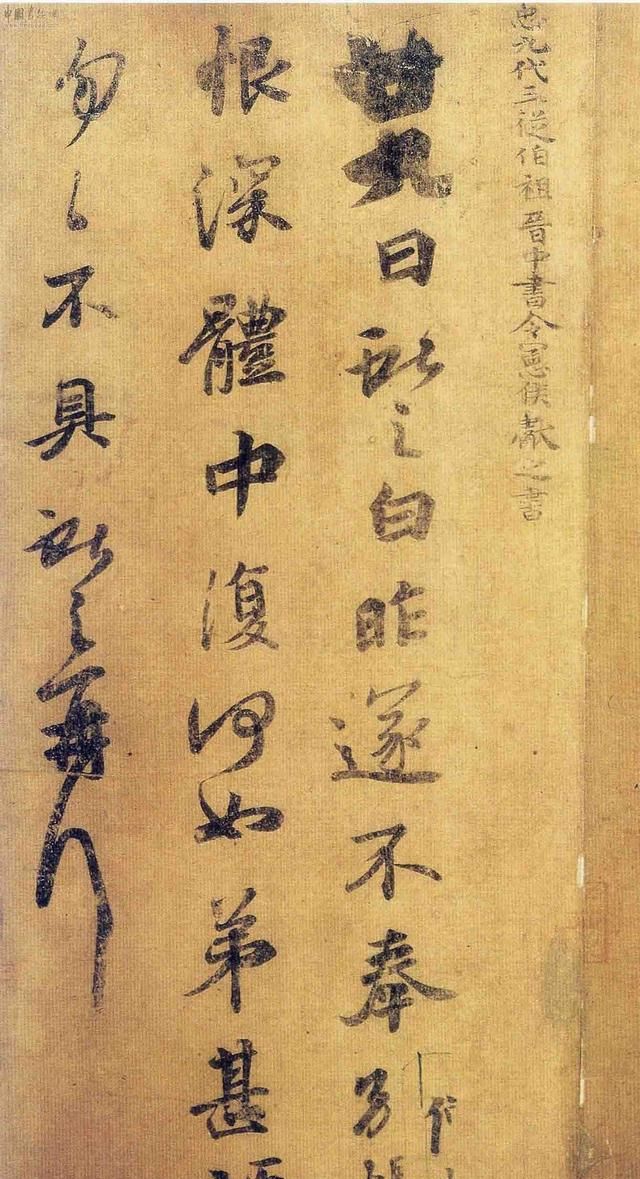 中國書法網
九代三從伯祖晉中書令憲侯獻之書
廿九日獻之白昨遂不奉別
恨深體中復何如弟甚
匆匆不具獻之再拜